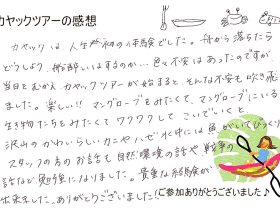 カヤックツアーの感想
カヤックは人生で初の体験でした。舟から落ちたら
どうしよう、船酔いはするのか…色々不安はあったのですが
当日とむかえカヤックツアーが始まると、そんな不安も吹き飛
ました。楽しい!!マングローブをみたくて、マングローブにいる
生き物たちをみたくてワクワクしてこいでいくと、
沢山のかわいらしいカニやハゼ、水中には魚がいてびっくり
スタッフの方のお話も自然環境の話や、戦争の
話など勉強になりました。貴重な経験が
出来ました。ありがとうございました!
ご参加ありがとうございました♪